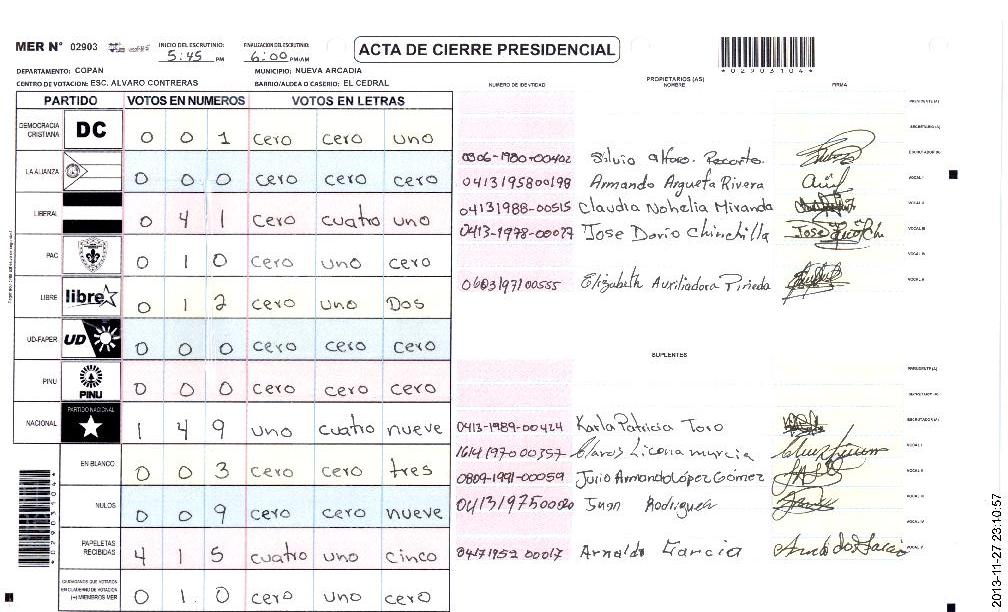 MER N° 02903 INICIO DEL ESCRUTINIO: 5:45 PM FINALIZACION DEL ESCRUTINIO: 6:00 PM/AM
ACTA DE CIERRE PRESIDENCIAL
*02903104*
DEPARTAMENTO: COPAN MUNICIPIO: NUEVA ARCADIA
CENTRO DE VOTACION: ESC. ALVARO CONTRERAS BARRIO/ALDEA O CASERIO: EL CEDRAL
PARTIDO VOTOS EN NUMEROS VOTOS EN LETRAS
DEMOCRACIA CRISTIANA DC 0 0 1 cero cero uno
LA ALIANZA 0 0 0 cero cero cero
LIBERAL 0 4 1 cero cuatro uno
PAC 0 1 0 cero uno cero
LIBRE libre 0 1 2 cero uno Dos
UD-FAPER UD 0 0 0 cero cero cero
PINU PINU 0 0 0 cero cero cero
NACIONAL PARTIDO NACIONAL 1 4 9 uno cuatro nueve
EN BLANCO 0 0 3 cero cero tres
NULOS 0 0 9 cero cero nueve
PAPELETAS RECIBIDAS 4 1 5 cuatro uno cinco
CIUDADANOS QUE VOTARON EN CUADERNO DE VOTACION (+) MIEMBROS MER 0 1 0 cero uno cero
*02903104*
NUMERO DE IDENTIDAD PROPIETARIOS (AS) NOMBRE FIRMA
PRESIDENTE (A)
SECRETARIO (A)
0306-1980-00402 Silvio alfaro. Recarte. ESCRUTADOR (A)
0413195800198 Armando Argueta Rivera VOCAL I
04131988-00515 Claudia Nohelia Miranda VOCAL II
0413-1978-00077 Jose Dario Chinchilla VOCAL III
VOCAL IV
0603197100555 Elizabeth Auxiliadora Pineda VOCAL V
SUPLENTES
PRESIDENTE (A)
SECRETARIO (A)
0413-1989-00424 Karla Patricia Toro ESCRUTADOR (A)
1614197000357 Licona murcia VOCAL I
0809-1991-00059 Julio Armando López Gómez VOCAL II
Juan Rodriguez VOCAL III
VOCAL IV
0417195200017 Arnaldo Garcia VOCAL V
2013-11-27 23:10:57